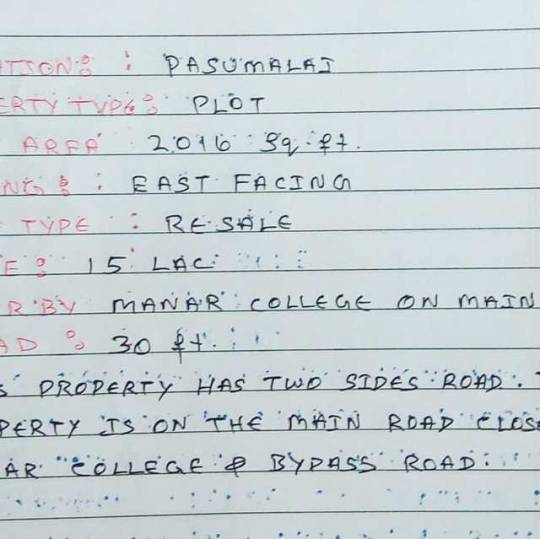 ATIONS : PASUMALAI
ERTY TYPE : PLOT
AREA 2016 Sq.ft.
NG : : EAST FACING
TYPE : RESALE
E : 15 LAC
R BY MANAR COLLEGE ON MAIN
AD : 30 ft.
S PROPERTY HAS TWO SIDES ROAD. T
PERTY IS ON THE MAIN ROAD CLOSE
AR COLLEGE & BYPASS ROAD.